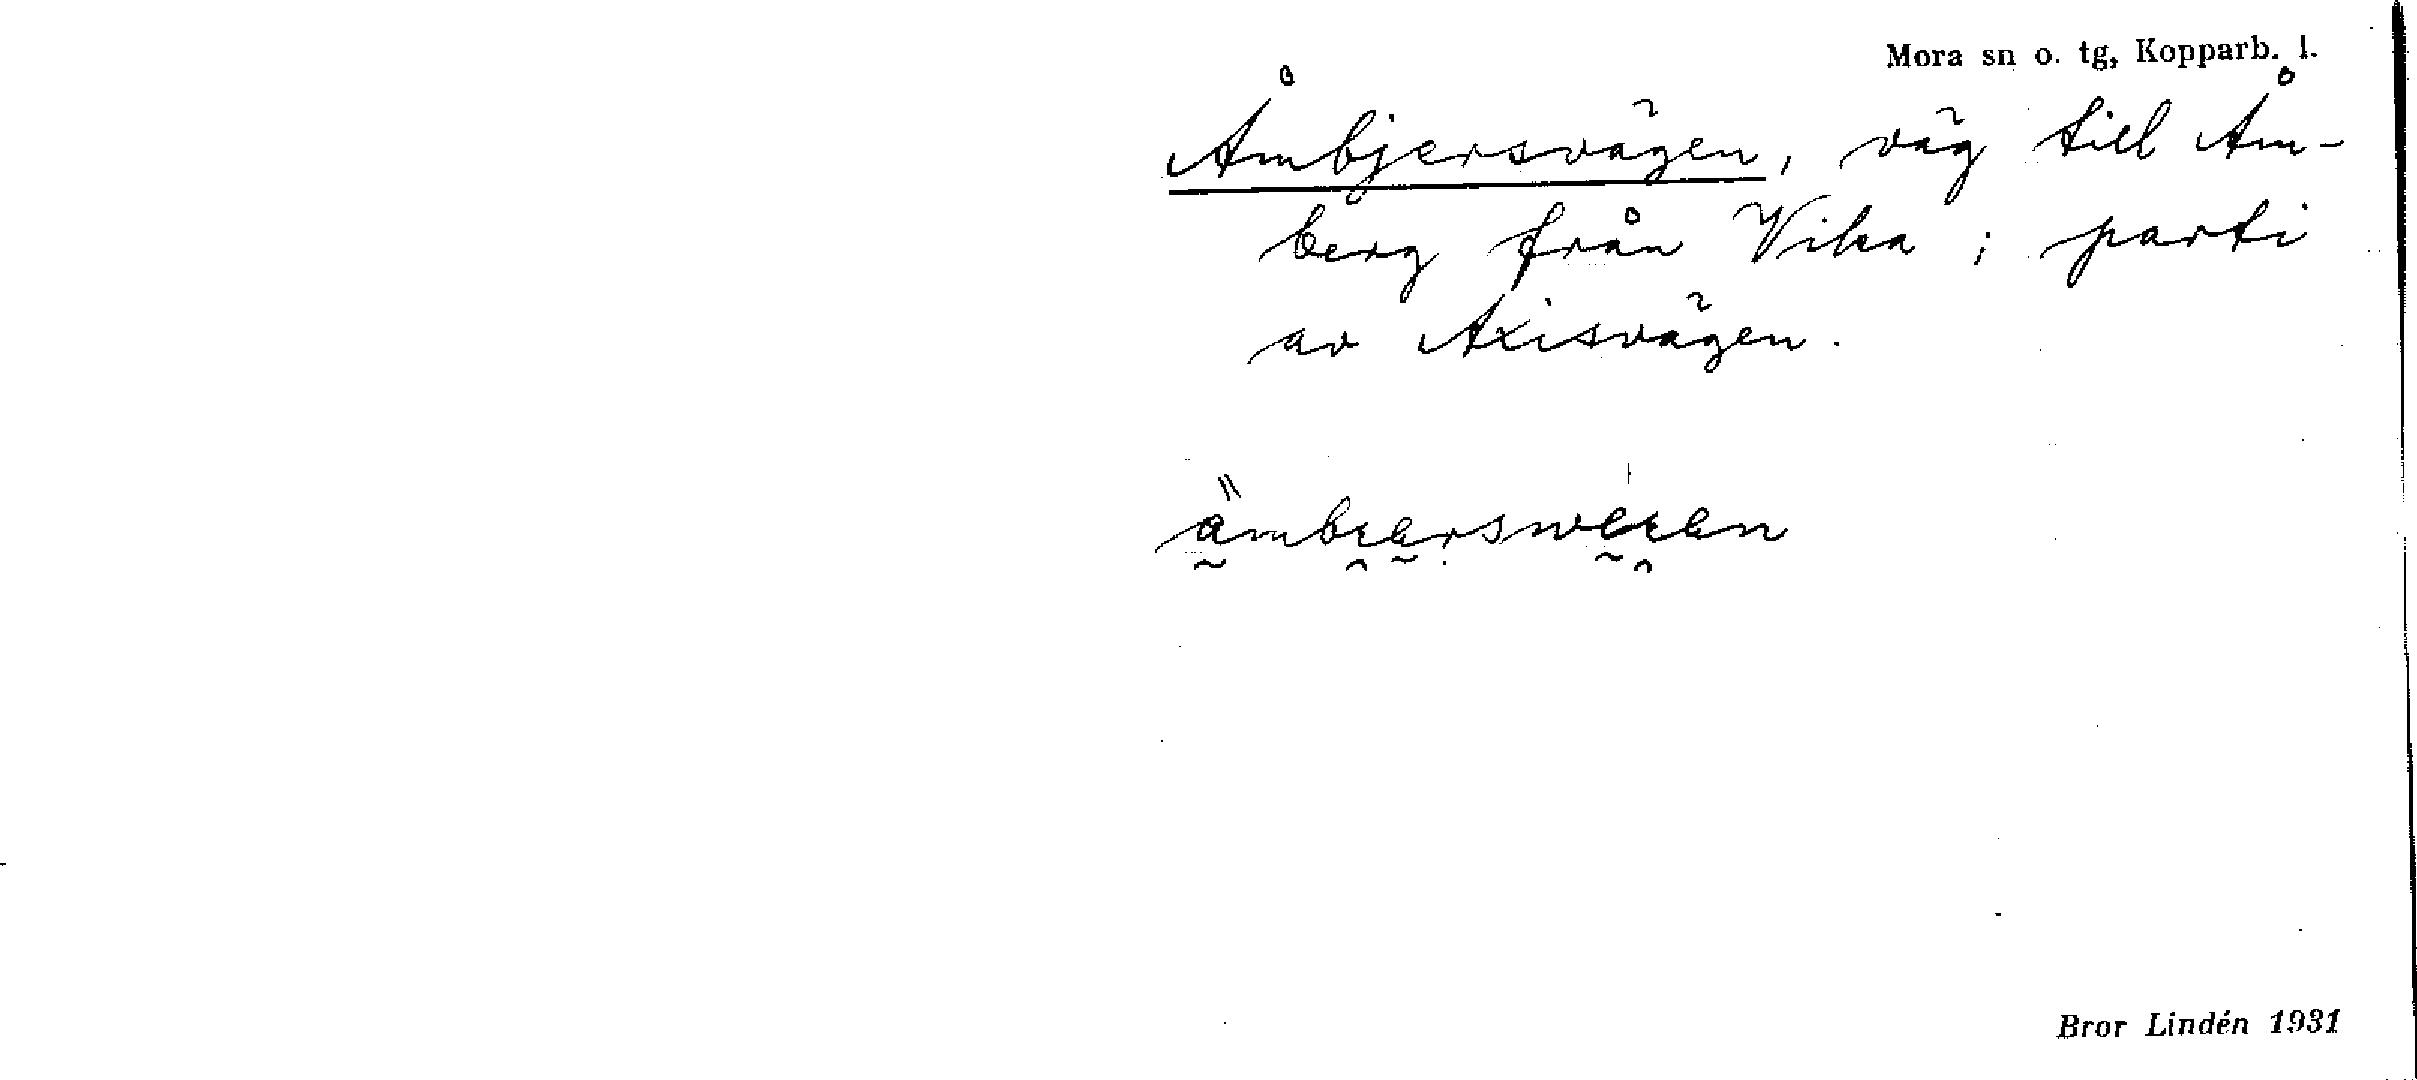 Mora sn o. tg, Kopparb. l.
Åmbjersvägen, väg till Åm-
berg från Vika; parti
av Axisvägen.
Bror Lindén 1931